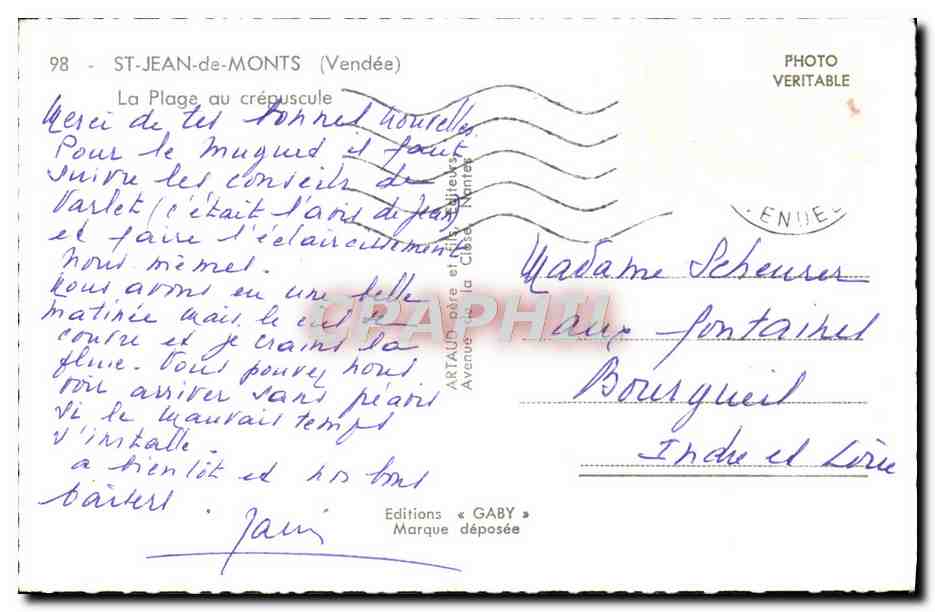 98 - ST-JEAN-de-MONTS (Vendée)
La Plage au crépuscule
PHOTO
VERITABLE
Merci de tes bonnes nouvelles
Pour le muguet il faut
suivre les conseils de
Varlet (c'était l'avis de Jean)
et faire l'éclaircissement
nous mêmes.
Nous avons eu une belle
matinée mais le ciel se
couvre et je crains la
pluie. Vous pouvez nous
voir arriver sans préavis
si le mauvais temps
s'installe.
a bientôt et nos bons
baisers.
ARTAUD père et Fils, Editeurs,
Avenue de la Close, Nantes
ENDE
Madame Scheurer
aux fontaines
Bourgueil
Indre et Loire
Editions « GABY »
Marque déposée
CPAPHIL